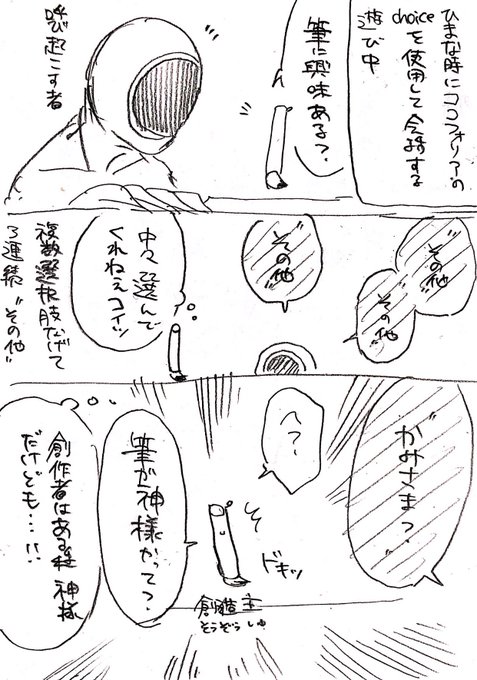 ひまな時にココフォリアの
choiceを使用して会話する
遊び中
筆に興味ある？
呼び起こす者
"その他"
"その他"
"その他"
中々選んで
くれねぇコイツ
複数選択肢なげて
3連続"その他"
"かみさま？"
へ？
ドキッ
創造主
そうぞうしゅ
筆が神様かって？
創作者はある種神様
だけども…!!